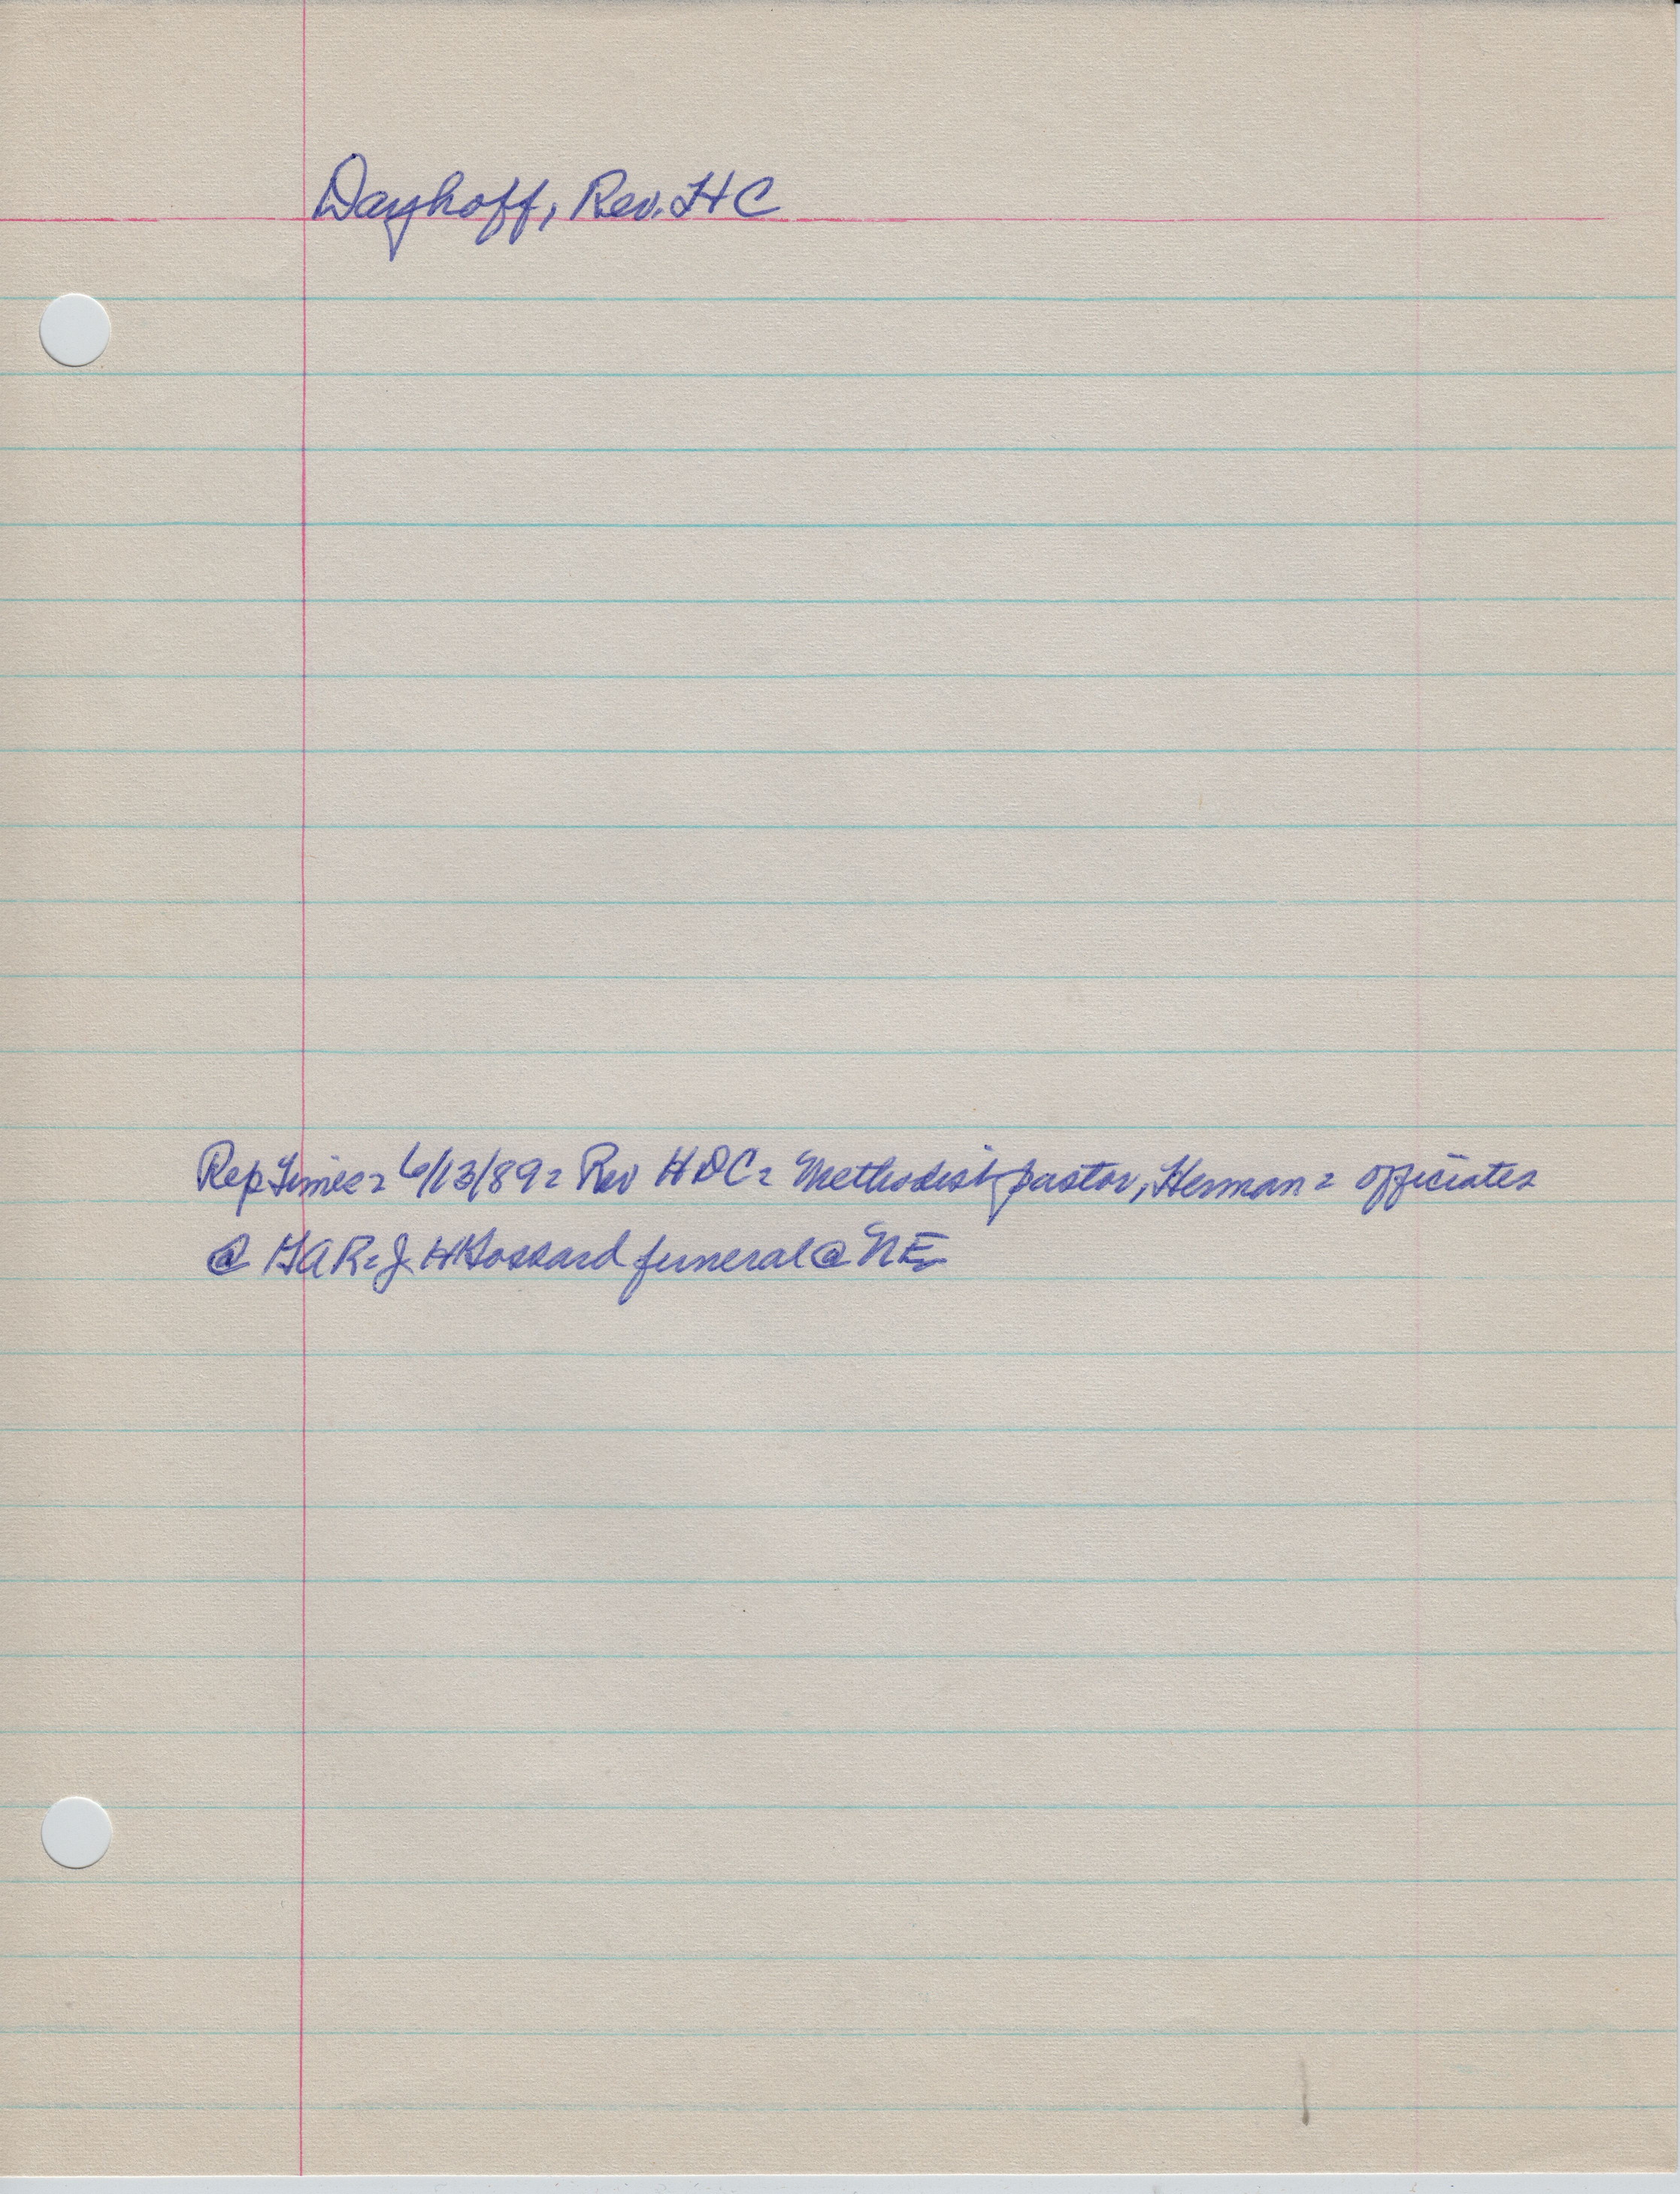 Dayhoff, Rev. H C
Rep Times = 6/13/89 = Rev HDC = Methodist pastor, Herman = officiates
@ GAR = J H Gossard funeral @ NE